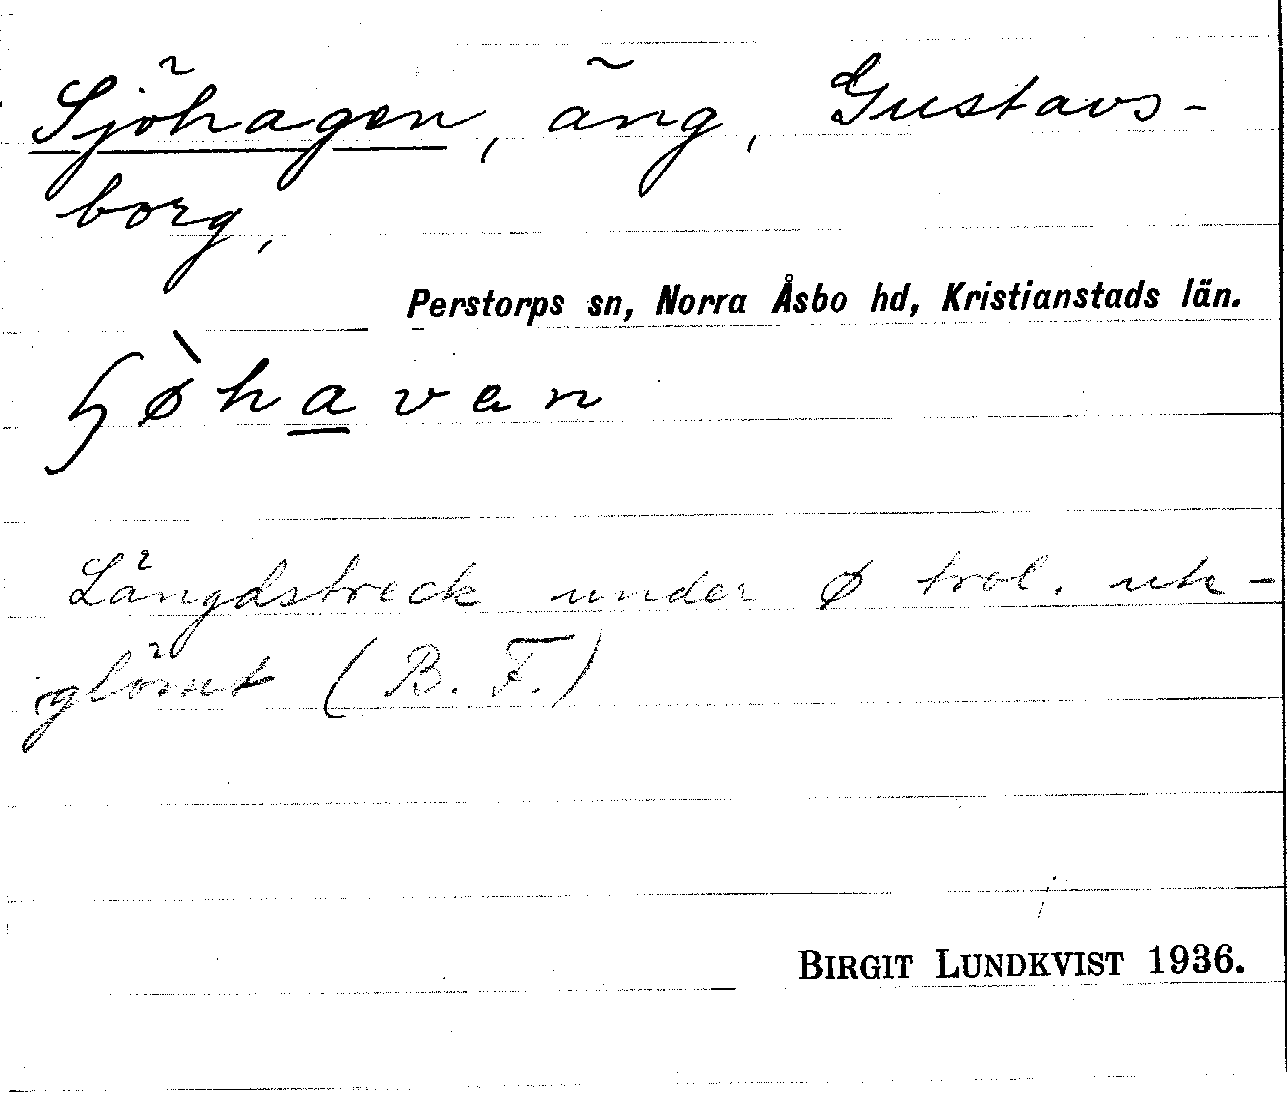 Sjöhagen, äng, Gustavs-
borg,
Perstorps sn, Norra Åsbo hd, Kristianstads län.
ɧø̀haven
Längdstreck under ø trol. ute-
glömt (B. F.)
BIRGIT LUNDKVIST 1936.